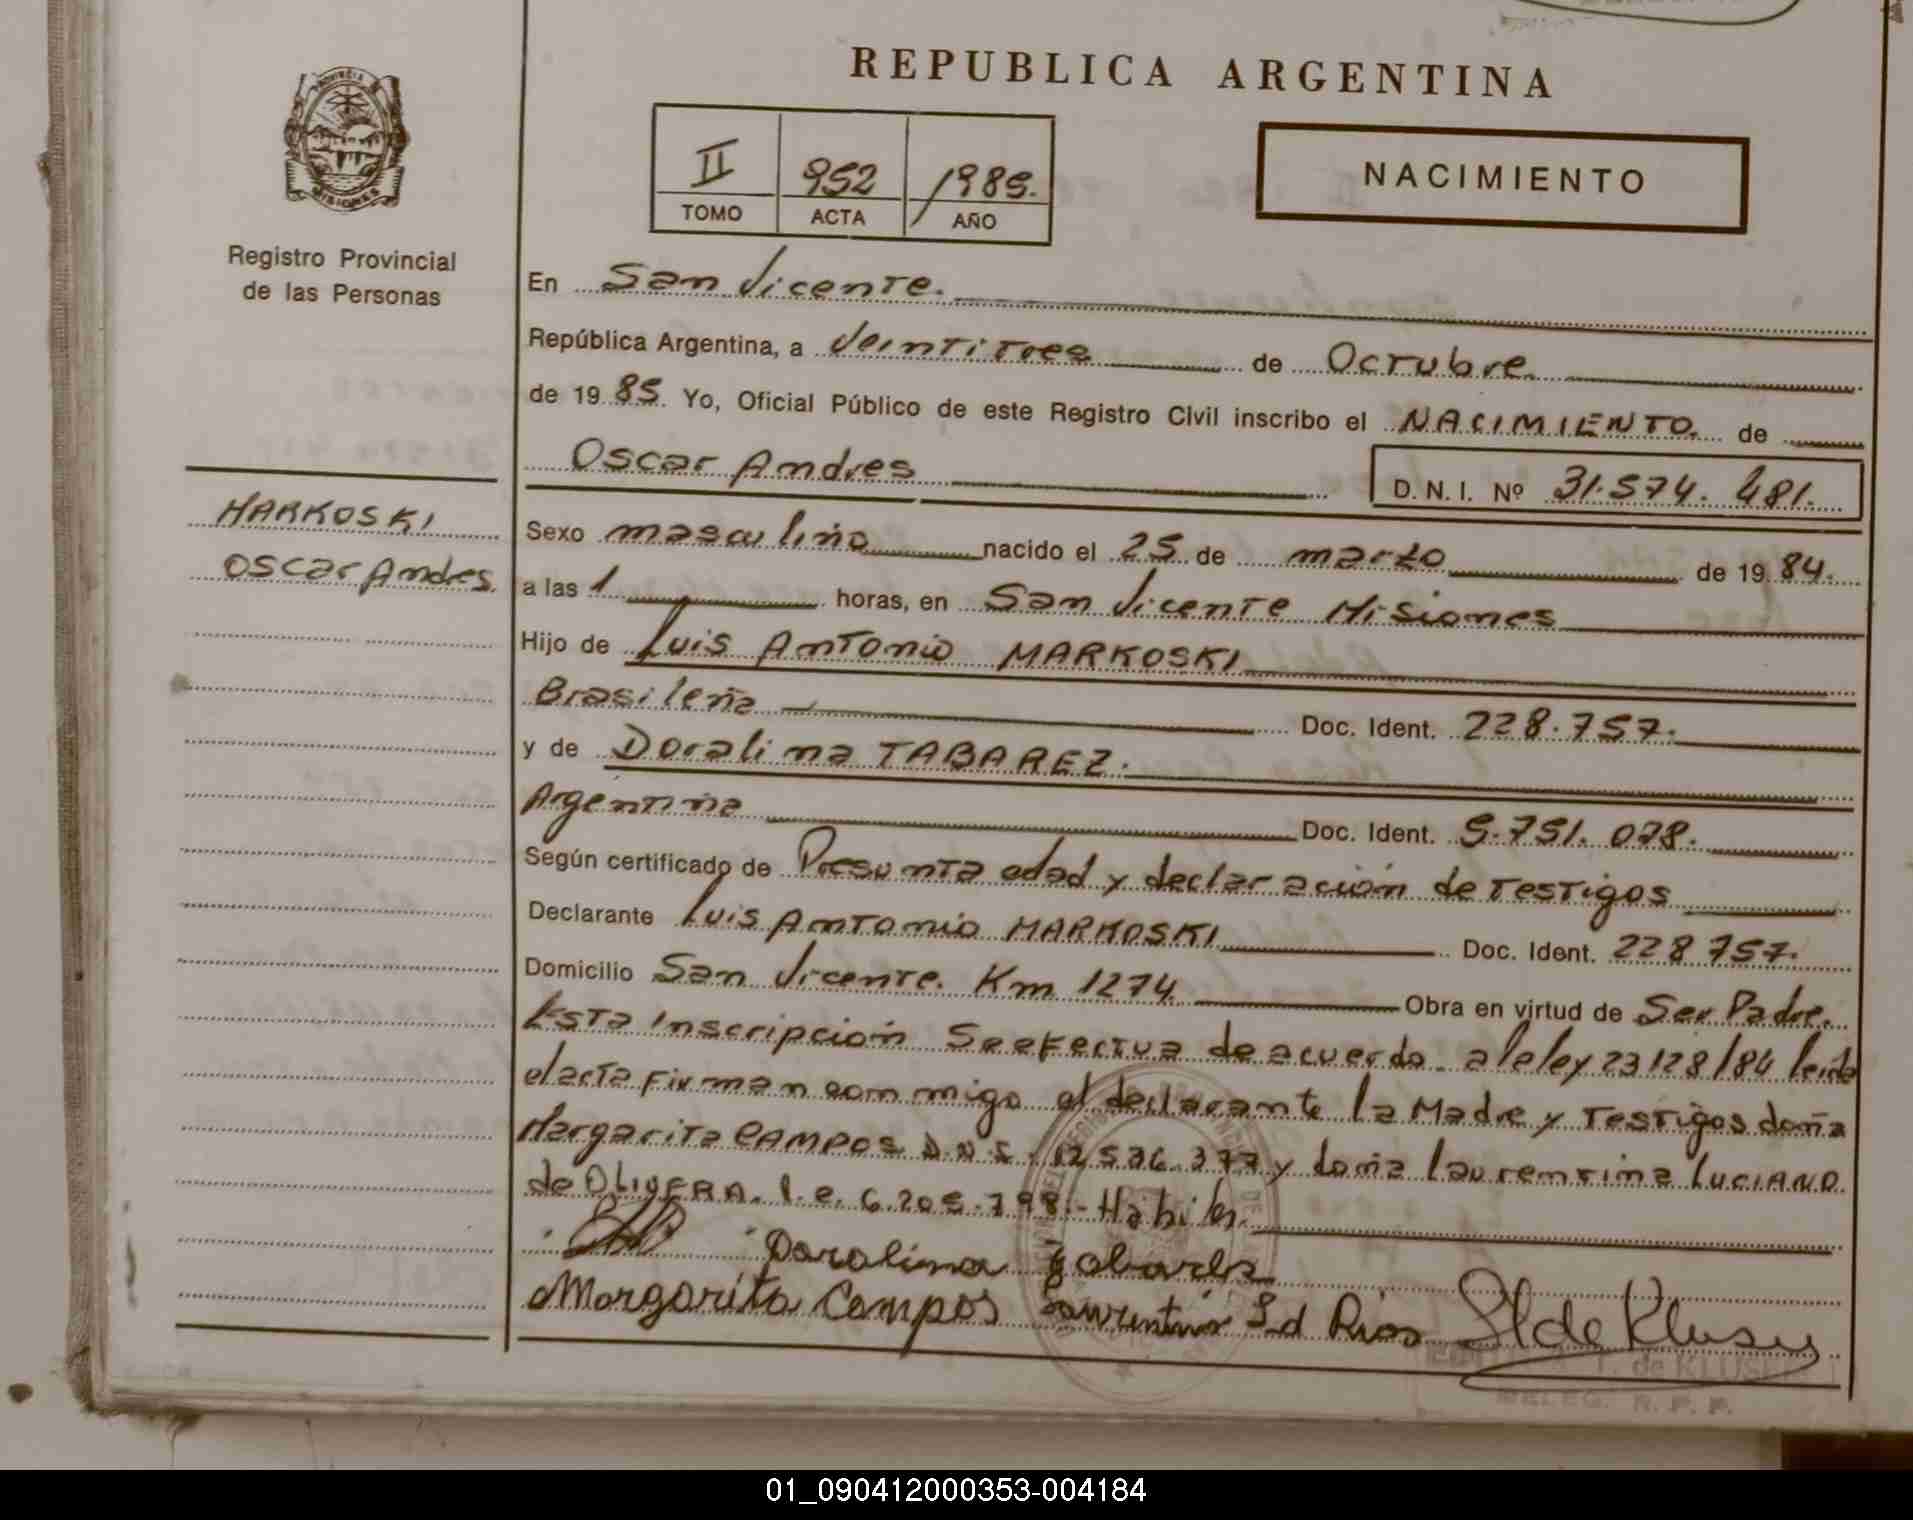 REPUBLICA ARGENTINA
PROVINCIA
MISIONES
Registro Provincial
de las Personas
II 952 1985.
TOMO ACTA AÑO
NACIMIENTO
En San Vicente.
República Argentina, a Veintitres de Octubre.
de 19 85. Yo, Oficial Público de este Registro Civil inscribo el NACIMIENTO. de
Oscar Andres
D. N. I. Nº 31.574.481.
MARKOSKI
Oscar Andres.
Sexo masculino nacido el 25 de marzo de 19 84.
a las 1 horas, en San Vicente Misiones
Hijo de Luis Antonio MARKOSKI
Brasileña Doc. Ident. 228.757.
y de Doralina TABAREZ.
Argentina Doc. Ident. 5.751.078.
Según certificado de Presunta edad y declaración de testigos
Declarante Luis Antonio MARKOSKI Doc. Ident. 228757.
Domicilio San Vicente. Km 1274. Obra en virtud de Ser Padre.
Esta Inscripción se efectua de acuerdo a le ley 23128/84 leida
el acta firman conmigo el declarante la Madre y Testigos doña
Margarita CAMPOS D.N.I. 12536.377 y doña Laurentina LUCIANO
de OLIVERA. l.e. 6.205.798.- Habiles.
Doralina Tabarez
Margarita Campos
de KLUSEN
DELEG. R. P. P.
01_090412000353-004184